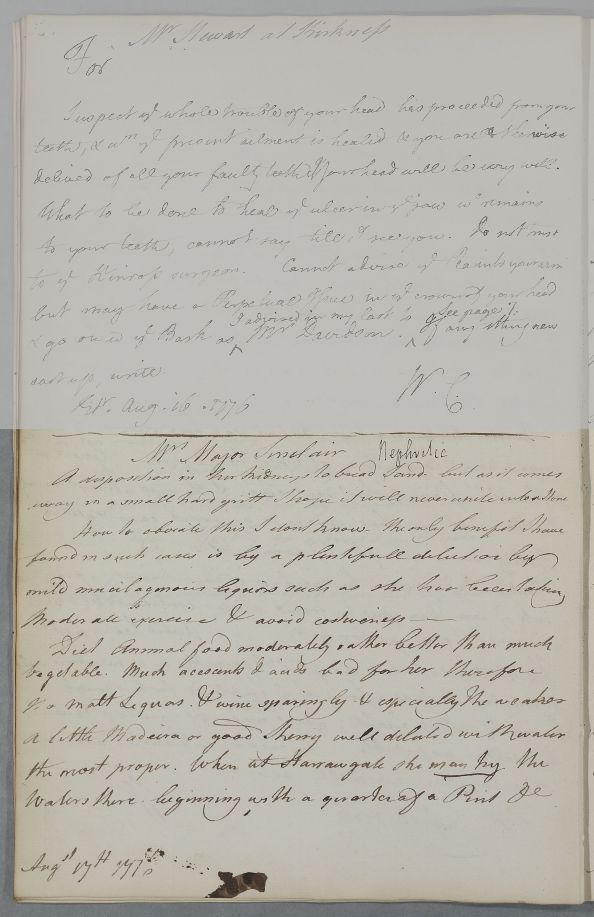 Mr Stewart at Kinkness
For
Suspect ye whole trouble of your head has proceeded from your
teeth, & wn ye present ailment is healed & you are otherwise
delived of all your faulty teeth your head will be very well.
What to be done to heal ye ulcer in ye jaw wc remains
to your teeth, cannot say till I see you. Do not trust
to ye Kinross surgeon. Cannot advise ye in your arm
but may have a Perpetual Issue in ye crown of your head
& go on wt ye Bark as I advised in my last to Mr Davidson. (See page If any thing new
cast up, write.
W. C.
Edr. Aug. 16. 1776
Mrs Major Sinclair Nephritic
A disposition in her kidneys to breed Sand but as it comes
away in a small hard gritt I hope it will never unite into a Stone
How to obviate this I dont know the only benefit I have
found in such cases is by a plentifull dilution by
mild mucilagenous liquors such as she has been taking
Moderate exercise & avoid costiveness
Diet Animal food moderately rather better than much
vegetable. Much acescents & acids bad for her therefore
No malt Liquors. & wine sparingly & especially the weaker
A little Madeira or good Sherry well diluted with water
the most proper. When at Harrowgate she may try the
Waters there beginning with a quarter of a Pint &c
Augst 17th 1776